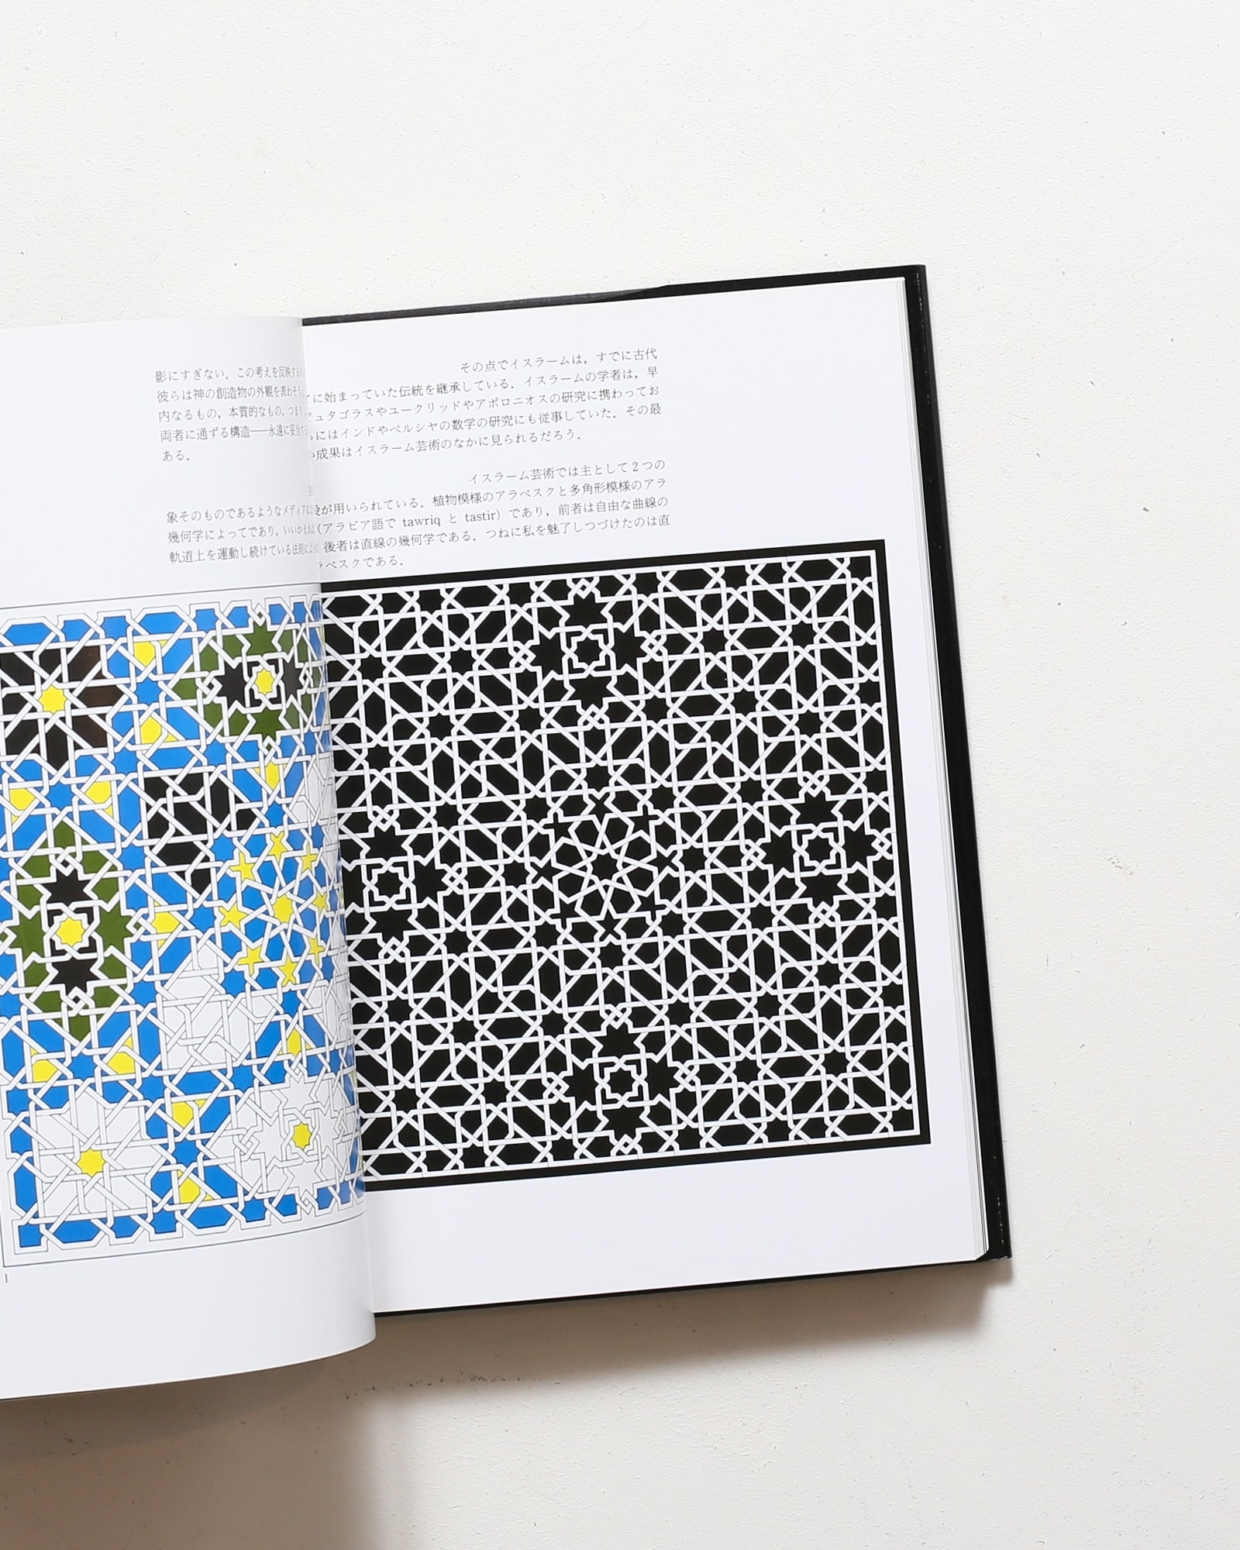 影にすぎない．この考えを反映する
彼らは神の創造物の外観を表わそ
内なるもの，本質的なもの，つまり
両者に通ずる構造──永遠に妥当す
ある．
象そのものであるようなメディア
幾何学によってであり，いいかえれば
軌道上を運動し続けている法則によ
1
その点でイスラームは，すでに古代
に始まっていた伝統を継承している．イスラームの学者は，早
ュタゴラスやユークリッドやアポロニオスの研究に携わってお
にはインドやペルシャの数学の研究にも従事していた．その最
成果はイスラーム芸術のなかに見られるだろう．
イスラーム芸術では主として2つの
が用いられている．植物模様のアラベスクと多角形模様のアラ
（アラビア語で tawriq と tastir）であり，前者は自由な曲線の
後者は直線の幾何学である．つねに私を魅了しつづけたのは直
ベスクである．